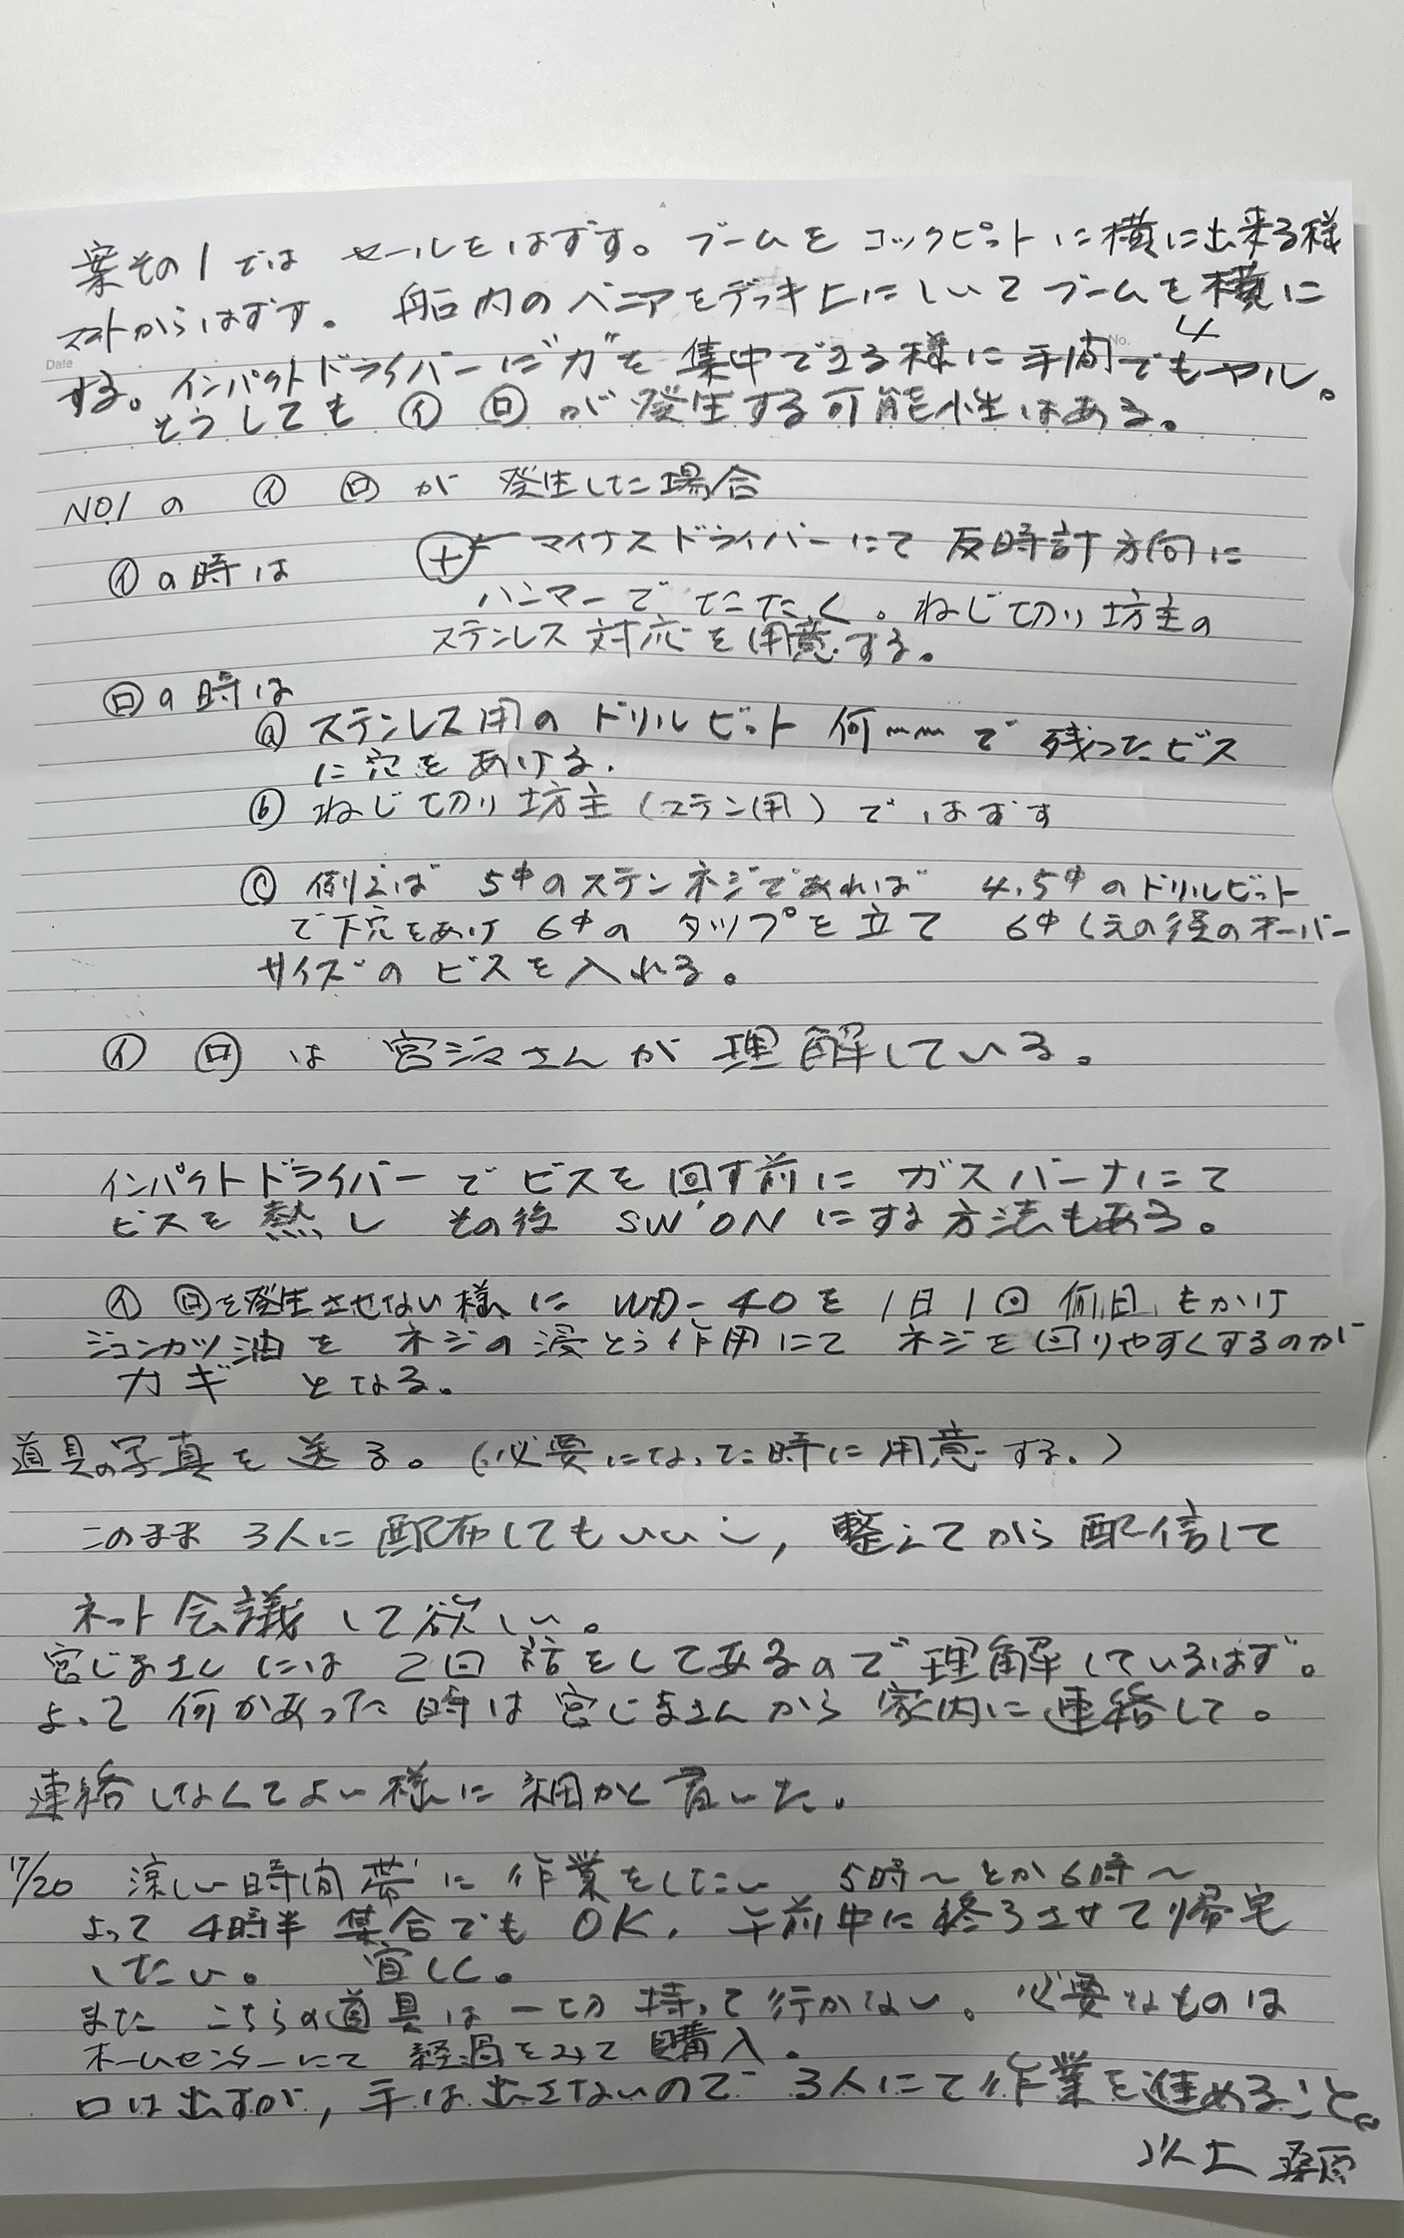 案その1では セールをはずす。ブームを コックピットに横に出来る様
マストからはずす。船内のベニアをデッキ上にしいて ブームを横に
Date No. 4
する。インパクトドライバーに"力"を集中できる様に 手間でもヤル。
そうしても ㋑ ㋺ が発生する可能性はある。
NO.1 の ㋑ ㋺ が 発生した場合
㋑の時は ⊕←マイナスドライバーにて 反時計方向に
ハンマーで たたく。ねじ切り坊主の
ステンレス対応を用意する。
㋺の時は
ⓐ ステンレス用の ドリルビット 何mmで 残ったビス
に穴をあける.
ⓑ ねじ切り坊主(ステン用)で はずす
ⓒ 例えば 5φのステンネジであれば 4.5φのドリルビット
で下穴をあけ 6φの タップを立て 6φ(元の径のオーバー
サイズのビスを入れる。
㋑ ㋺ は 宮ジマさんが 理解している。
インパクトドライバーでビスを回す前に ガスバーナにて
ビスを熱し その後 SW'ONにする方法もある。
㋑ ㋺を発生させない様に WD-40を 1日1回 何日もかけ
ジュンカツ油を ネジの浸とう作用にて ネジを回りやすくするのが
カギ となる。
道具の写真を送る。(必要になった時に用意する.)
このまま 3人に配布してもいいし, 整えてから配信して
ネット会議して欲しい。
宮じまさんには 2回話をしてあるので理解しているはず。
よって 何かあった時は宮じまさんから 家内に連絡して。
連絡しなくてよい様に細かく書いた。
17/20 涼しい時間帯に作業をしたい 5時〜とか6時〜
よって 4時半 集合でもOK. 午前中に終了させて帰宅
したい。 宜しく。
また こちらの道具は一切持って行かない。必要なものは
ホームセンターにて 経過をみて購入。
口は出すが, 手は出さないので 3人にて作業を進めること。
以上 桑原